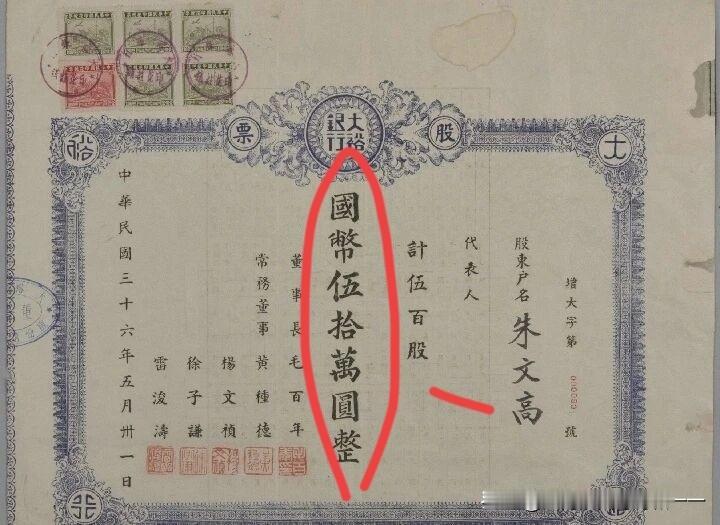 大裕銀行
股票
大
裕
行
增大字第 號
股東户名 朱文高
代表人
計伍百股
國幣伍拾萬圓整
董事長毛百年
常務董事黃種德
楊文楨
徐子謙
雷浚濤
中華民國三十六年五月卅一日